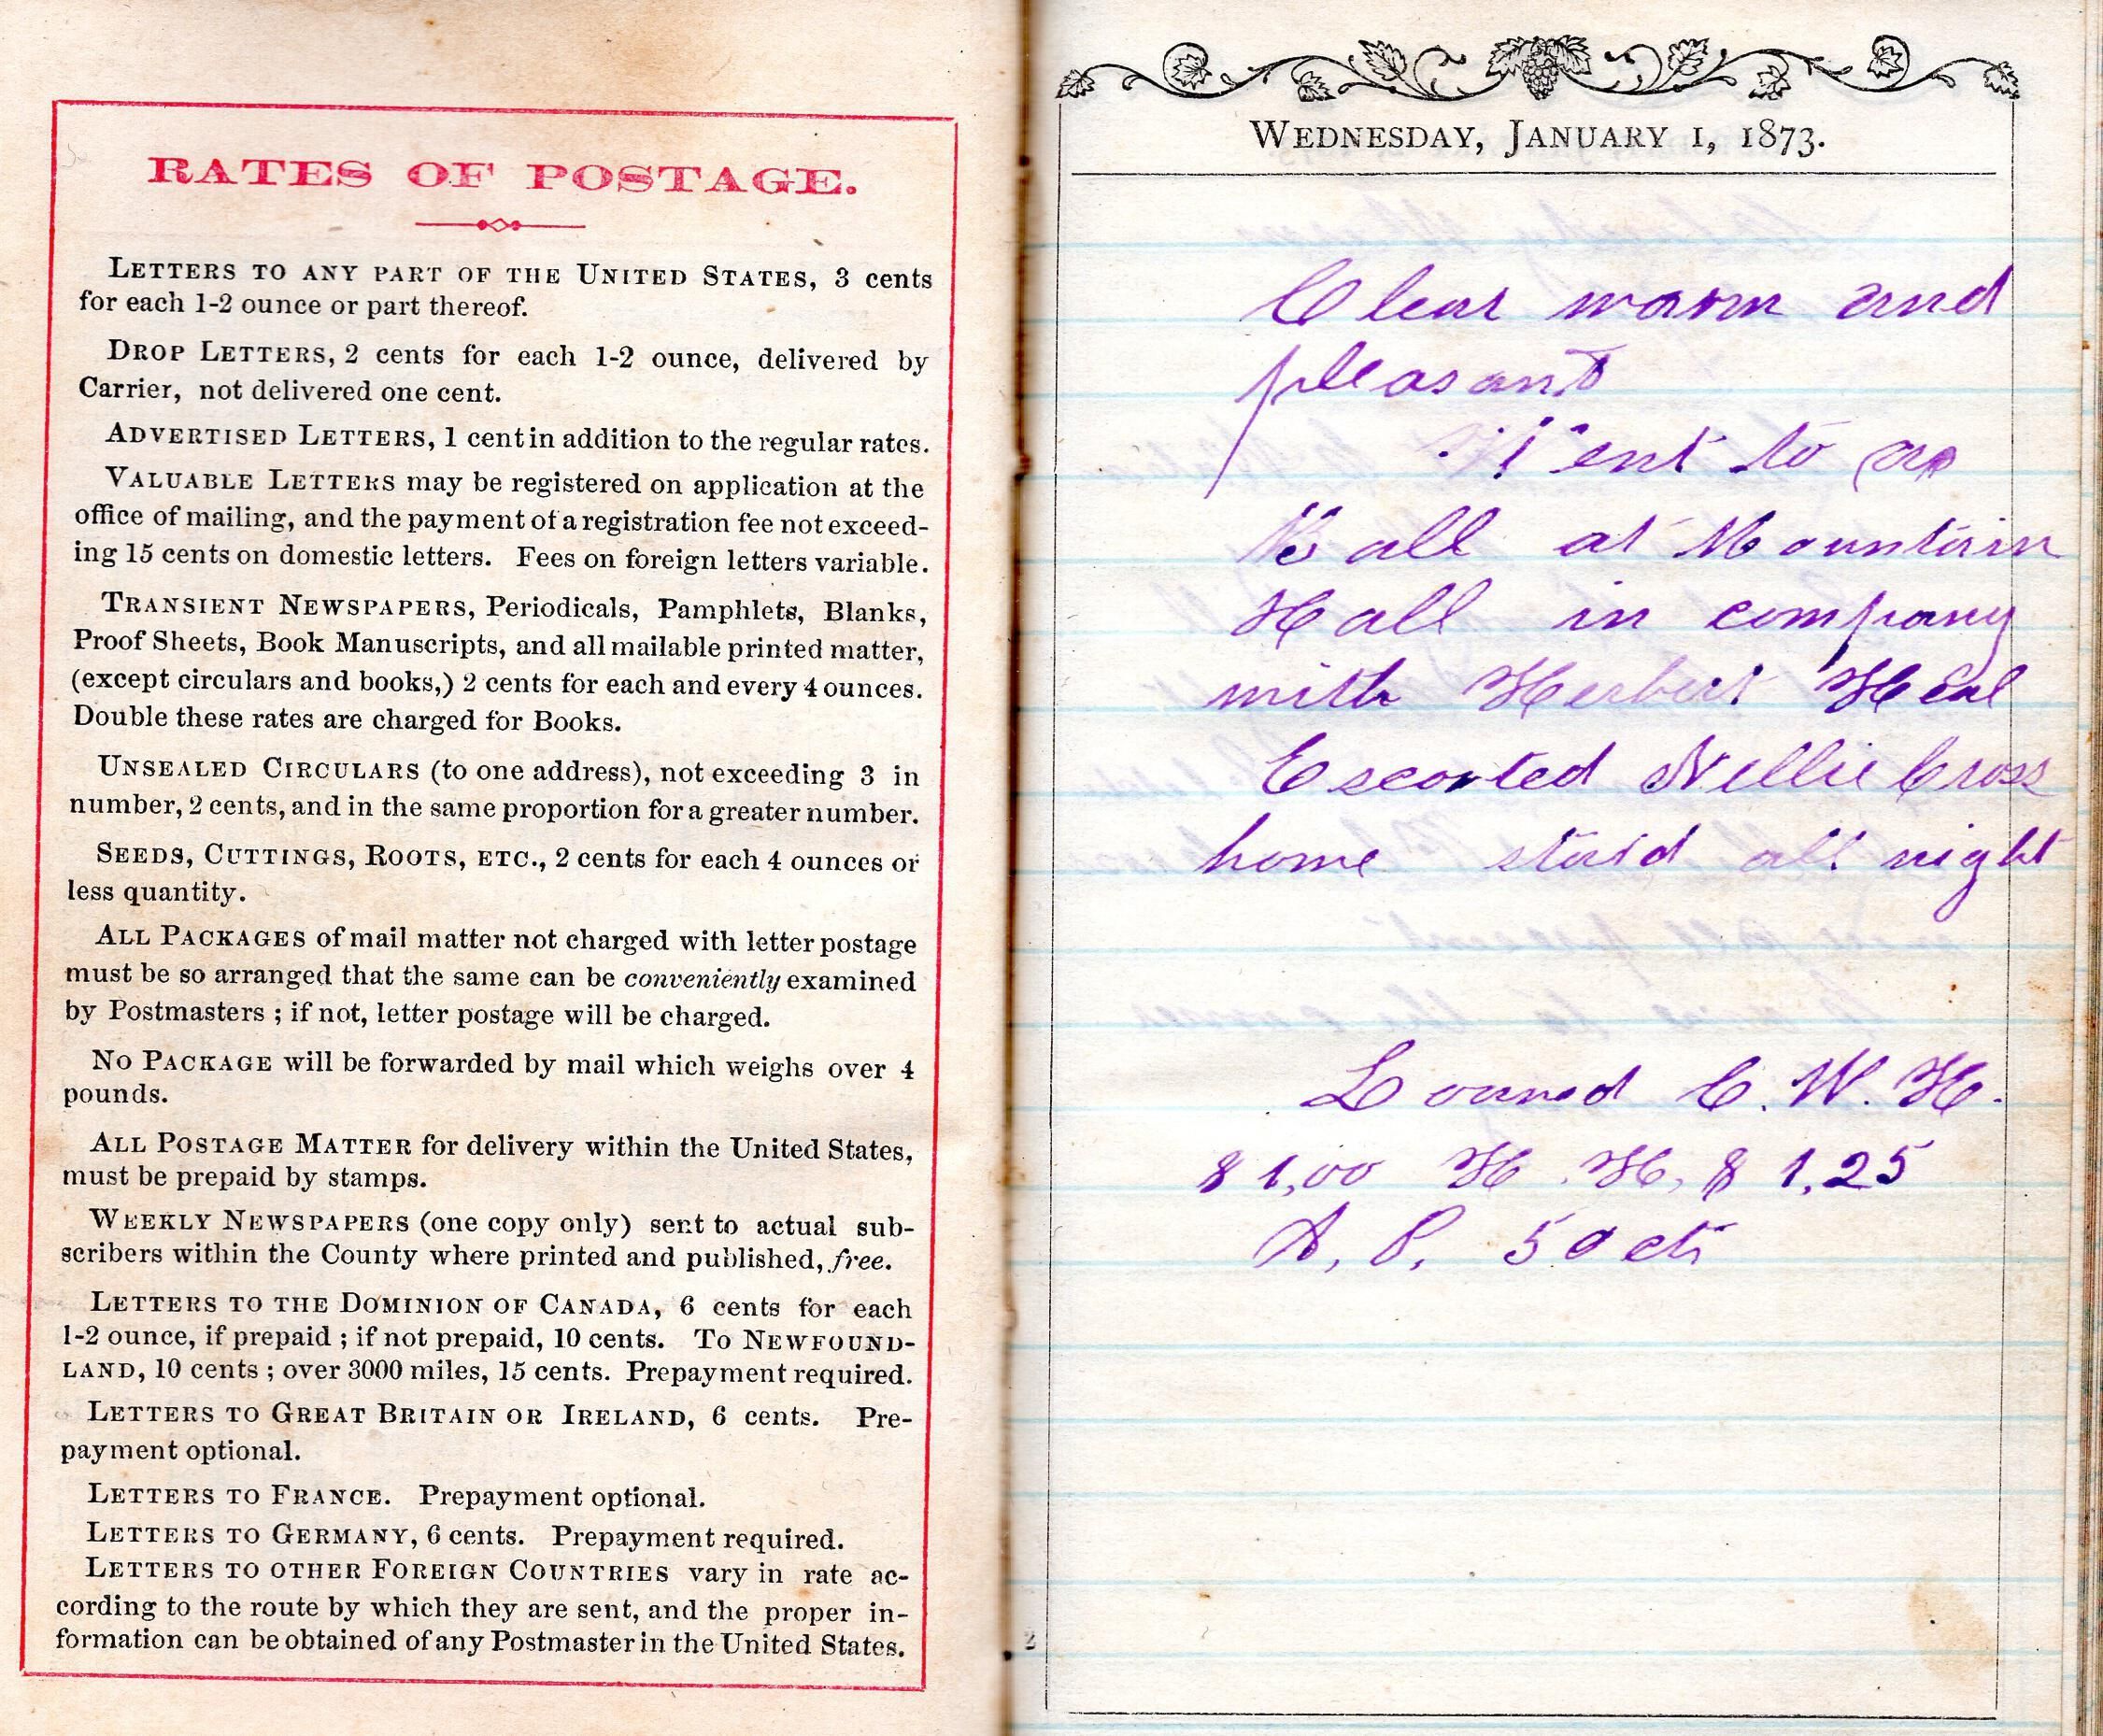 RATES OF POSTAGE.
LETTERS TO ANY PART OF THE UNITED STATES, 3 cents
for each 1-2 ounce or part thereof.
DROP LETTERS, 2 cents for each 1-2 ounce, delivered by
Carrier, not delivered one cent.
ADVERTISED LETTERS, 1 cent in addition to the regular rates.
VALUABLE LETTERS may be registered on application at the
office of mailing, and the payment of a registration fee not exceed-
ing 15 cents on domestic letters. Fees on foreign letters variable.
TRANSIENT NEWSPAPERS, Periodicals, Pamphlets, Blanks,
Proof Sheets, Book Manuscripts, and all mailable printed matter,
(except circulars and books,) 2 cents for each and every 4 ounces.
Double these rates are charged for Books.
UNSEALED CIRCULARS (to one address), not exceeding 3 in
number, 2 cents, and in the same proportion for a greater number.
SEEDS, CUTTINGS, ROOTS, ETC., 2 cents for each 4 ounces or
less quantity.
ALL PACKAGES of mail matter not charged with letter postage
must be so arranged that the same can be conveniently examined
by Postmasters ; if not, letter postage will be charged.
NO PACKAGE will be forwarded by mail which weighs over 4
pounds.
ALL POSTAGE MATTER for delivery within the United States,
must be prepaid by stamps.
WEEKLY NEWSPAPERS (one copy only) sent to actual sub-
scribers within the County where printed and published, free.
LETTERS TO THE DOMINION OF CANADA, 6 cents for each
1-2 ounce, if prepaid ; if not prepaid, 10 cents. To NEWFOUND-
LAND, 10 cents ; over 3000 miles, 15 cents. Prepayment required.
LETTERS TO GREAT BRITAIN OR IRELAND, 6 cents. Pre-
payment optional.
LETTERS TO FRANCE. Prepayment optional.
LETTERS TO GERMANY, 6 cents. Prepayment required.
LETTERS TO OTHER FOREIGN COUNTRIES vary in rate ac-
cording to the route by which they are sent, and the proper in-
formation can be obtained of any Postmaster in the United States.
WEDNESDAY, JANUARY 1, 1873.
Clear warm and
pleasant
Went to a
Ball at Mountain
Hall in company
with Herbert Heal
Escorted Nellie Cross
home staid all night
Loaned C. W. H.
$1,00 H. H, $1,25
A, P, 50 cts
2